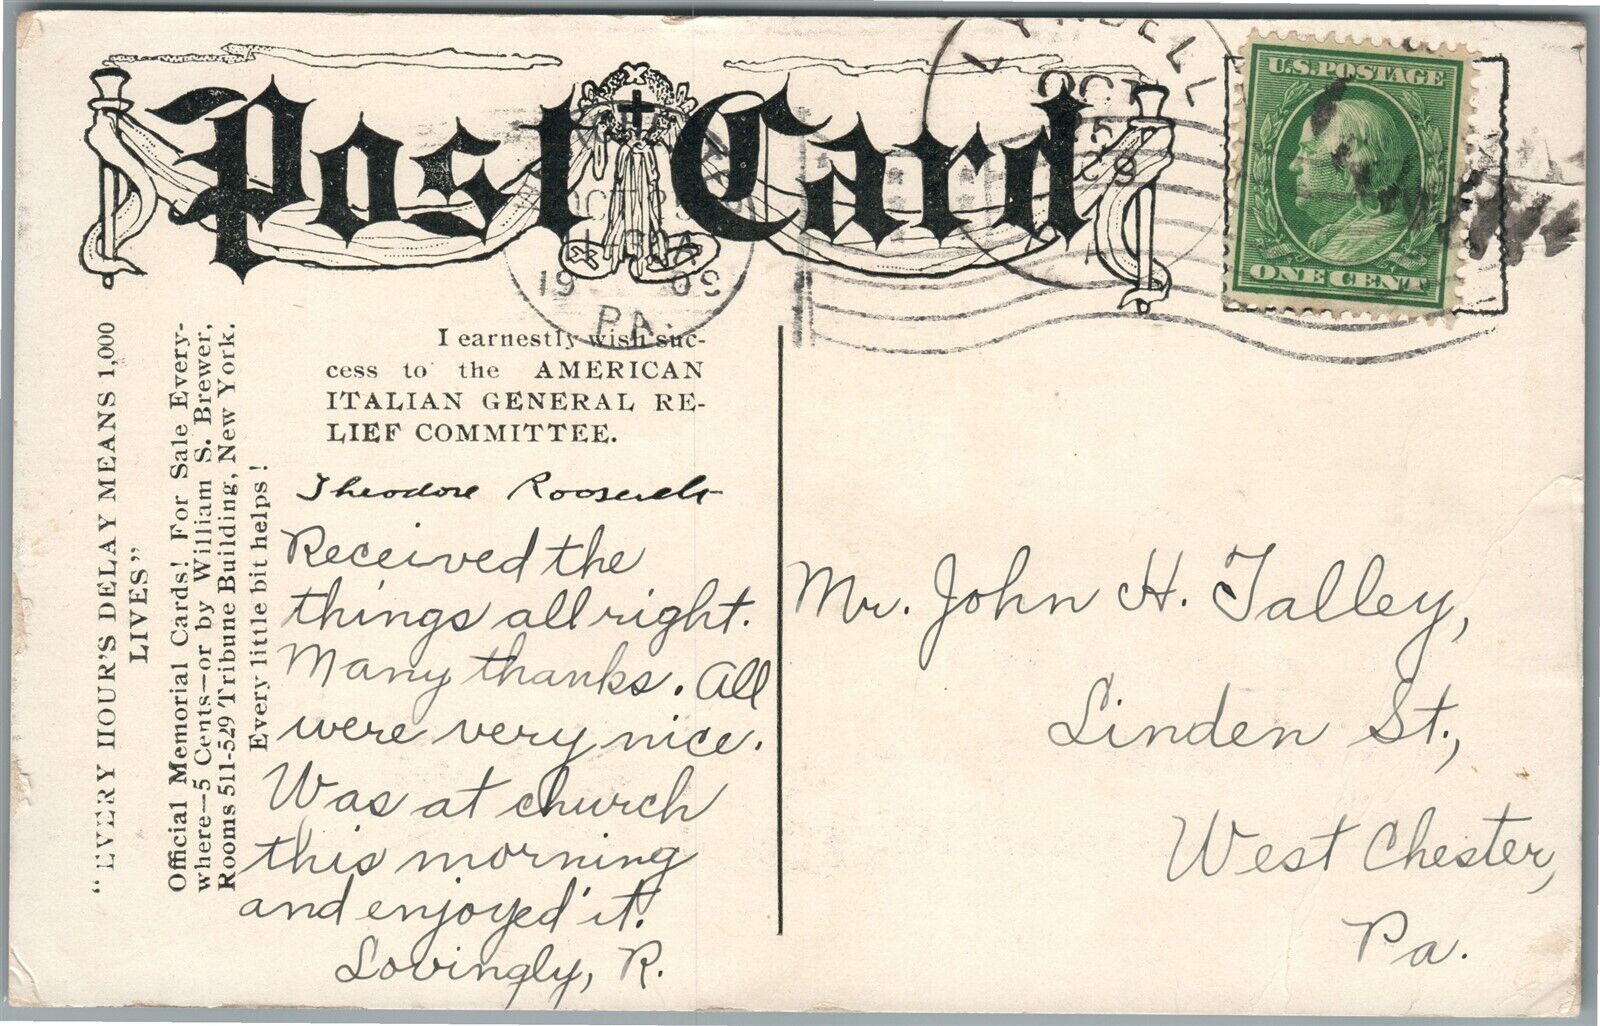 Post Card
LYNDELL
OCT
5
PA.
U.S. POSTAGE
ONE CENT
OCT
19 09
PA.
"EVERY HOUR'S DELAY MEANS 1,000
LIVES"
Official Memorial Cards! For Sale Every-
where—5 Cents—or by William S. Brewer,
Rooms 511-529 Tribune Building, New York.
Every little bit helps!
I earnestly wish suc-
cess to the AMERICAN
ITALIAN GENERAL RE-
LIEF COMMITTEE.
Theodore Roosevelt
Received the
things all right.
Many thanks. All
were very nice.
Was at church
this morning
and enjoyed it.
Lovingly, R.
Mr. John H. Talley,
Linden St.,
West Chester,
Pa.